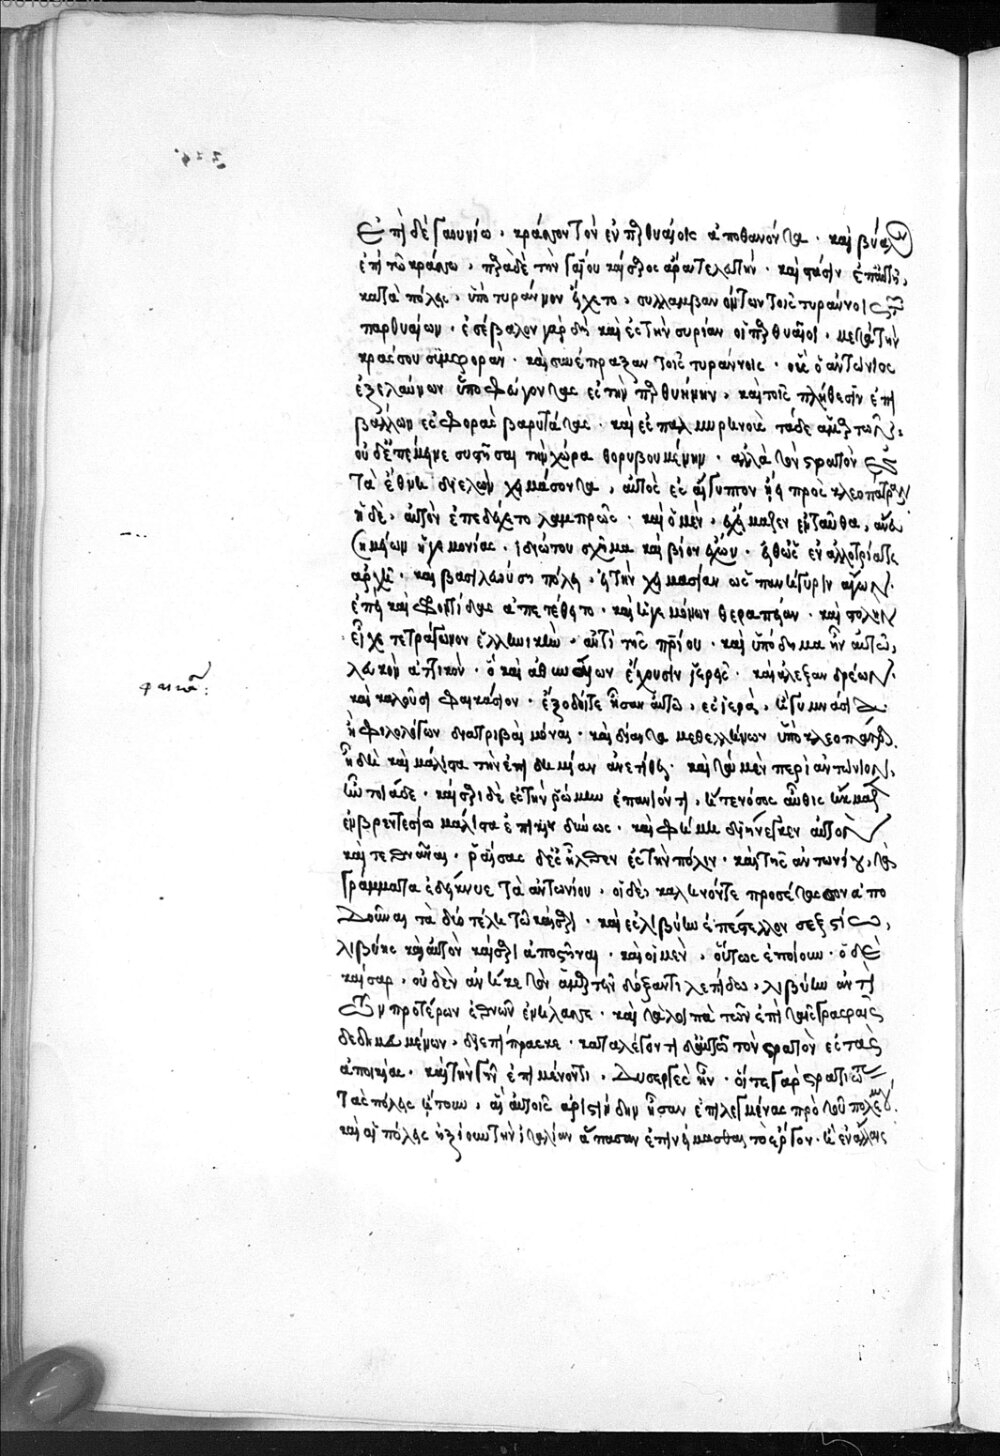 ἐπὶ δὲ γαουινίω, κράσσον τὸν ἐν παρθυαίοις ἀποθανόντα. καὶ βύβλον
ἐπὶ τῶ κράσσω, παρὰ δὲ τὴν γαΐου καίσαρος ἄρα τελευτὴν. καὶ στάσιν ἐπ' αὐτῆ,
κατὰ πόλεις, ὑπὸ τυράννων εἴχετο, συλλαμβανόντων τοῖς τυράννοις τῶν
παρθυαίων. ἐσέβαλον γὰρ δὴ καὶ ἐς τὴν συρίαν οἱ παρθυαῖοι, μετὰ τὴν
κράσσου συμφορὰν. καὶ συνέπραξαν τοῖς τυράννοις. οὓς ὁ ἀντώνιος
ἐξελαύνων ὑποφεύγοντας ἐς τὴν παρθυήνην, καὶ τοῖς πλήθεσιν ἐπι
βάλλων ἐσφορὰς βαρυτάτας. καὶ ἐς παλμυρηνοὺς τάδε ἁμαρτὼν,
οὐδ' ἐπέμεινε συστῆσαι τὴν χώραν θορυβουμένην. ἀλλὰ τὸν στρατὸν ἐς
τὰ ἔθνη διελὼν χειμάσοντα, αὐτὸς ἐς αἴγυπτον ἤει πρὸς κλεοπάτραν
ἡ δὲ, αὐτὸν ἐπεδέχετο λαμπρῶς. καὶ ὁ μὲν, ἐχείμαζεν ἐνταῦθα, ἄνευ
σημείων ἡγεμονίας. ἰδιώτου σχῆμα καὶ βίον ἔχων. εἴθ' ὡς ἐν ἀλλοτρία τε
ἀρχῆ. καὶ βασιλευούση πόλει. εἴτε τὴν χειμασίαν ὡς πανήγυριν ἄγων.
ἐπεὶ καὶ φροντίδας ἀπετέθειτο. καὶ ἡγεμόνων θεραπείαν. καὶ στολὴν
εἶχε τετράγωνον ἑλληνικὴν, ἀντὶ τῆς πατρίου. καὶ ὑπόδημα ἦν αὐτῶ,
λευκὸν ἀττικὸν. ὃ καὶ ἀθηναίων ἔχουσιν ἱερεῖς. καὶ ἀλεξανδρέων.
καὶ καλοῦσι φαικάσιον. ἔξοδοί τε ἦσαν αὐτῶ, ἐς ἱερὰ, ἢ γυμνάσια.
ἢ φιλολόγων διατριβαὶ μόναι. καὶ δίαιτα μεθ' ἑλλήνων ὑπὸ κλεοπάτρα.
ἧ δὴ καὶ μάλιστα τὴν ἐπιδημίαν ἀνετίθει. καὶ τὰ μὲν περὶ ἀντώνιον,
ἦν τοιάδε. καίσαρι δὲ ἐς τὴν ῥώμην ἐπανιόντι, ἥ τε νόσος αὖθις ἤκμαζεν
ἐν βρεντεσίω μάλιστα ἐπικινδύνως. καὶ φήμη διήνεγκεν αὐτὸν
καὶ τεθνάναι. ῥαΐσας δὲ ἐσῆλθεν ἐς τὴν πόλιν. καὶ τοῖς ἀντωνίου, τὰ
γράμματα ἐδείκνυε τὰ ἀντωνίου. οἱ δὲ, καληνόν τε προσέτασσον ἀπο
δοῦναι τὰ δύο τέλη τῶ καίσαρι. καὶ ἐς λιβύην ἐπέστελλον σεξστίω,
λιβύης καὶ αὐτὸν καίσαρι ἀποστῆναι. καὶ οἱ μὲν, οὕτως ἐποίουν. ὁ δὲ
καῖσαρ, οὐδὲν ἀνήκεστον ἁμαρτεῖν δόξαντι λεπίδω, λιβύην ἀντὶ
τῶν προτέρων ἐθνῶν ἐνήλλασσε. καὶ τὰ λοιπὰ τῶν ἐπὶ ταῖς γραφαῖς
δεδημευμένων, διεπίπρασκε. καταλέγοντι δ' αὐτῶ τὸν στρατὸν ἐς τὰς
ἀποικίας. καὶ τὴν γῆν ἐπινέμοντι, δυσεργὲς ἦν. οἵ τε γὰρ στρατιῶται
τὰς πόλεις ἤτουν, αἳ αὐτοῖς ἀριστίνδην ἦσαν ἐπιλεγμέναι πρὸ τοῦ πολέμου.
καὶ αἱ πόλεις ἠξίουν τὴν ἰταλίαν ἅπασαν ἐπινείμασθαι τὸ ἔργον. ἢ ἐν ἄλλαις